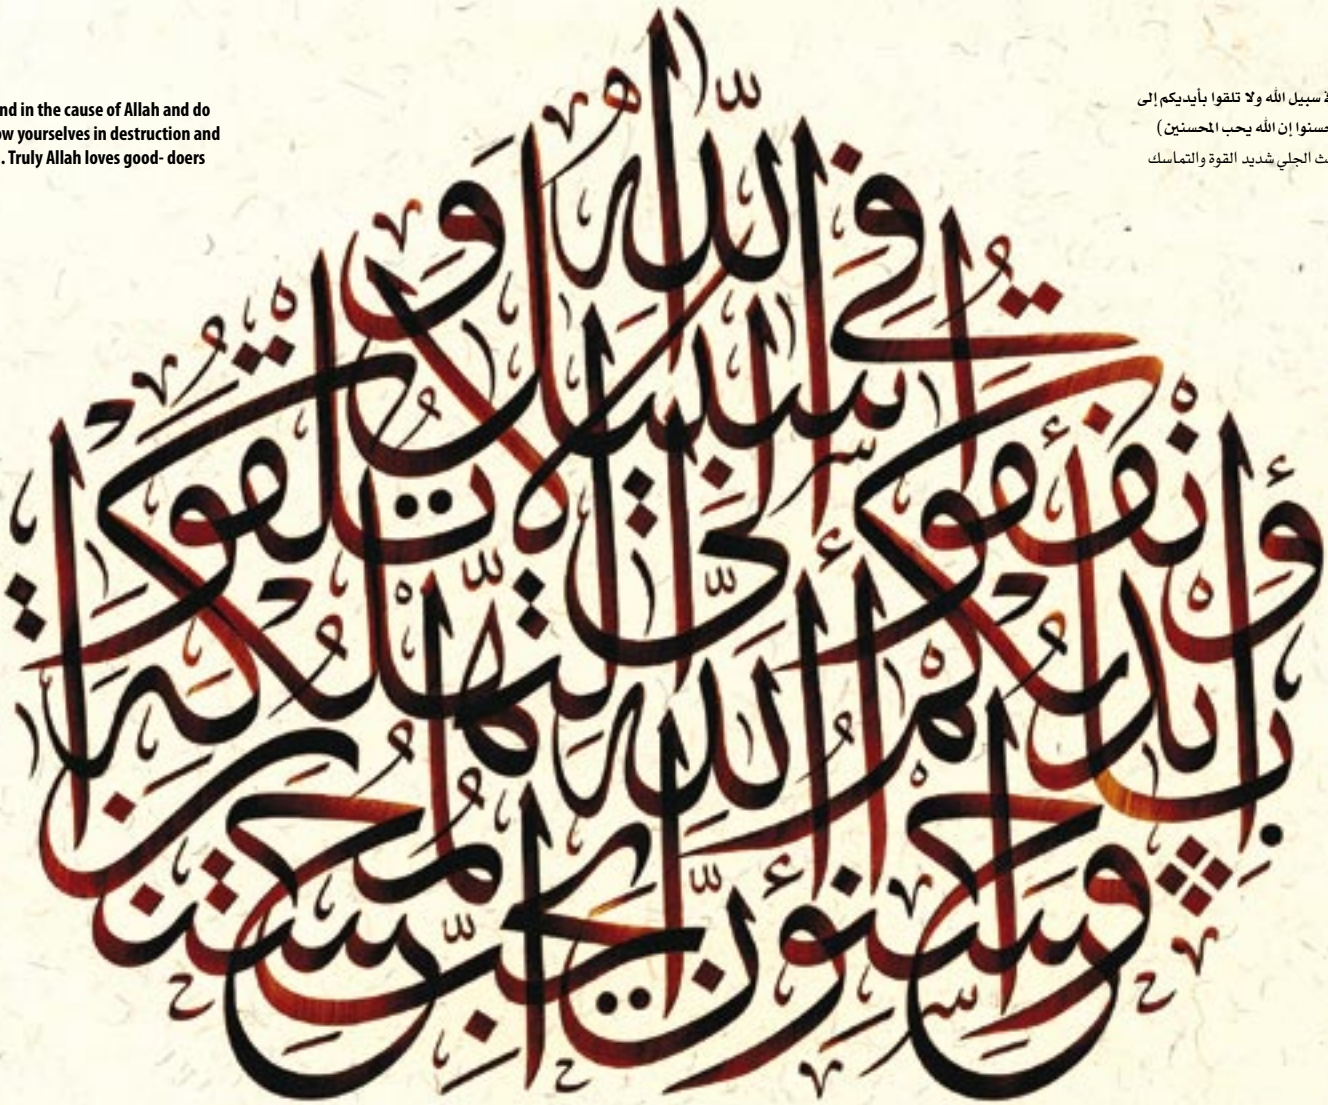 nd in the cause of Allah and do
ow yourselves in destruction and
. Truly Allah loves good- doers
سبيل الله ولا تلقوا بأيديكم إلى
حسنوا إن الله يحب المحسنين)
ث الجلي شديد القوة والتماسك
وأنفقوا في سبيل الله ولا تلقوا
بأيديكم إلى التهلكة
وأحسنوا إن الله يحب المحسنين